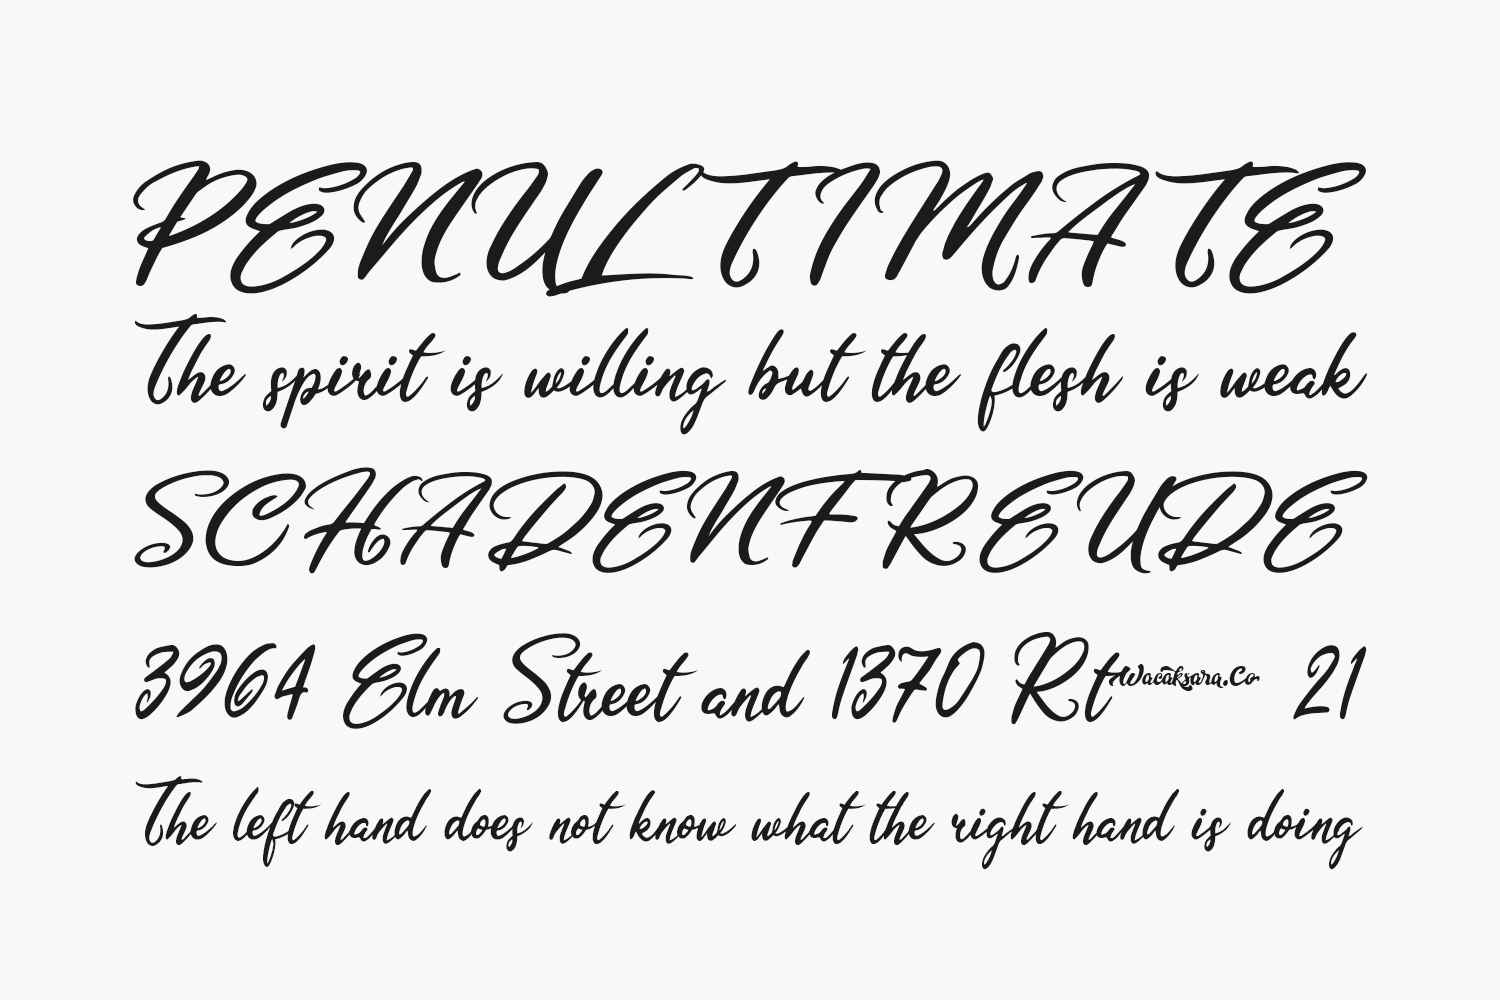 PENULTIMATE
The spirit is willing but the flesh is weak
SCHADENFREUDE
3964 Elm Street and 1370 Rt Wacaksara.Co 21
The left hand does not know what the right hand is doing